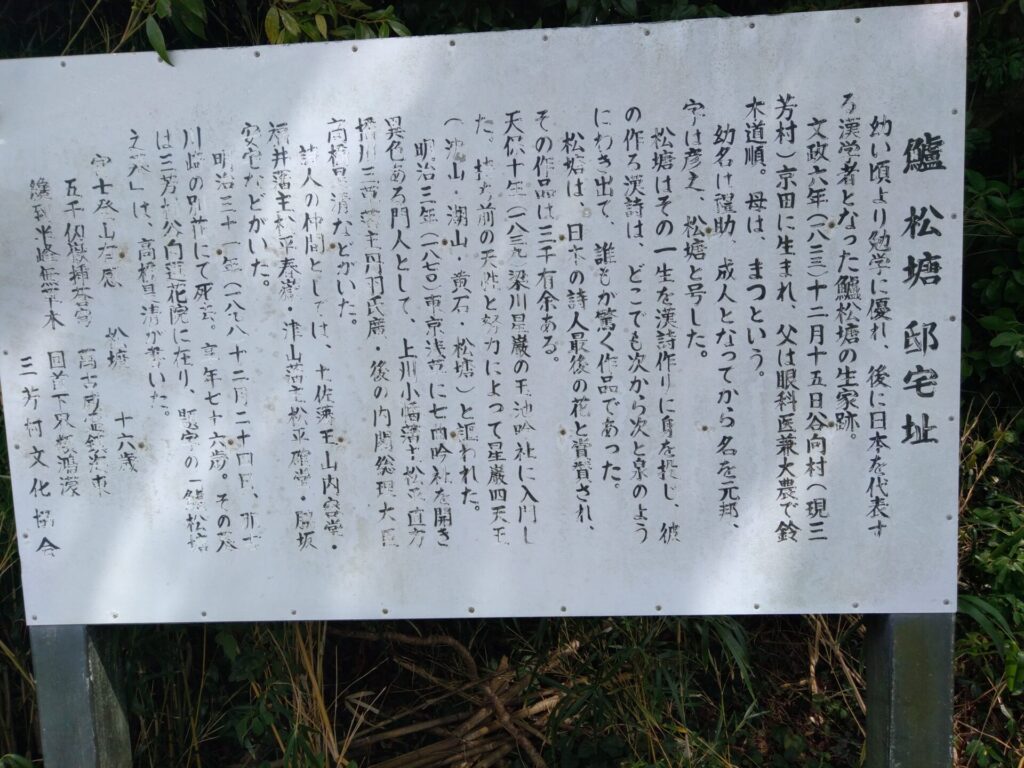 鱸 松塘 邸宅址
幼い頃より勉学に優れ、後に日本を代表す
る漢学者となった鱸松塘の生家跡。
文政六年(一八三三)十二月十五日谷向村(現三
芳村)京田に生まれ、父は眼科医兼大農で鈴
木道順。母は、まつという。
幼名は理助、成人となってから名を元邦、
字は彦之、松塘と号した。
松塘はその一生を漢詩作りに身を投じ、彼
の作る漢詩は、どこでも次から次と泉のよう
にわき出て、誰もが驚く作品であった。
松塘は、日本の詩人最後の花と賞賛され、
その作品は三千有余ある。
天保十年(一八三九)梁川星巌の玉池吟社に入門し
た。持ち前の天性と努力によって星巌四天王
(枕山・湖山・黄石・松塘)と謳われた。
明治三年(一八七〇)東京浅草に七曲吟社を開き
異色ある門人として、上川小幡藩主松平直方
三草藩主丹羽氏廣・後の内閣総理大臣
高橋是清などがいた。
詩人の仲間としては、土佐藩主山内容堂・
福井藩主松平春嶽・津山藩主松平確堂・脇坂
安宅などがいた。
明治三十一年(一八九八)十二月二十四日、
川崎の別荘にて死去。享年七十六歳。その墓
は三芳村谷向蓮花院に在り、墓字の「鱸松塘
之墓」は、高橋是清が書いた。
富士登山有感 松塘 十六歳
三芳村文化協会